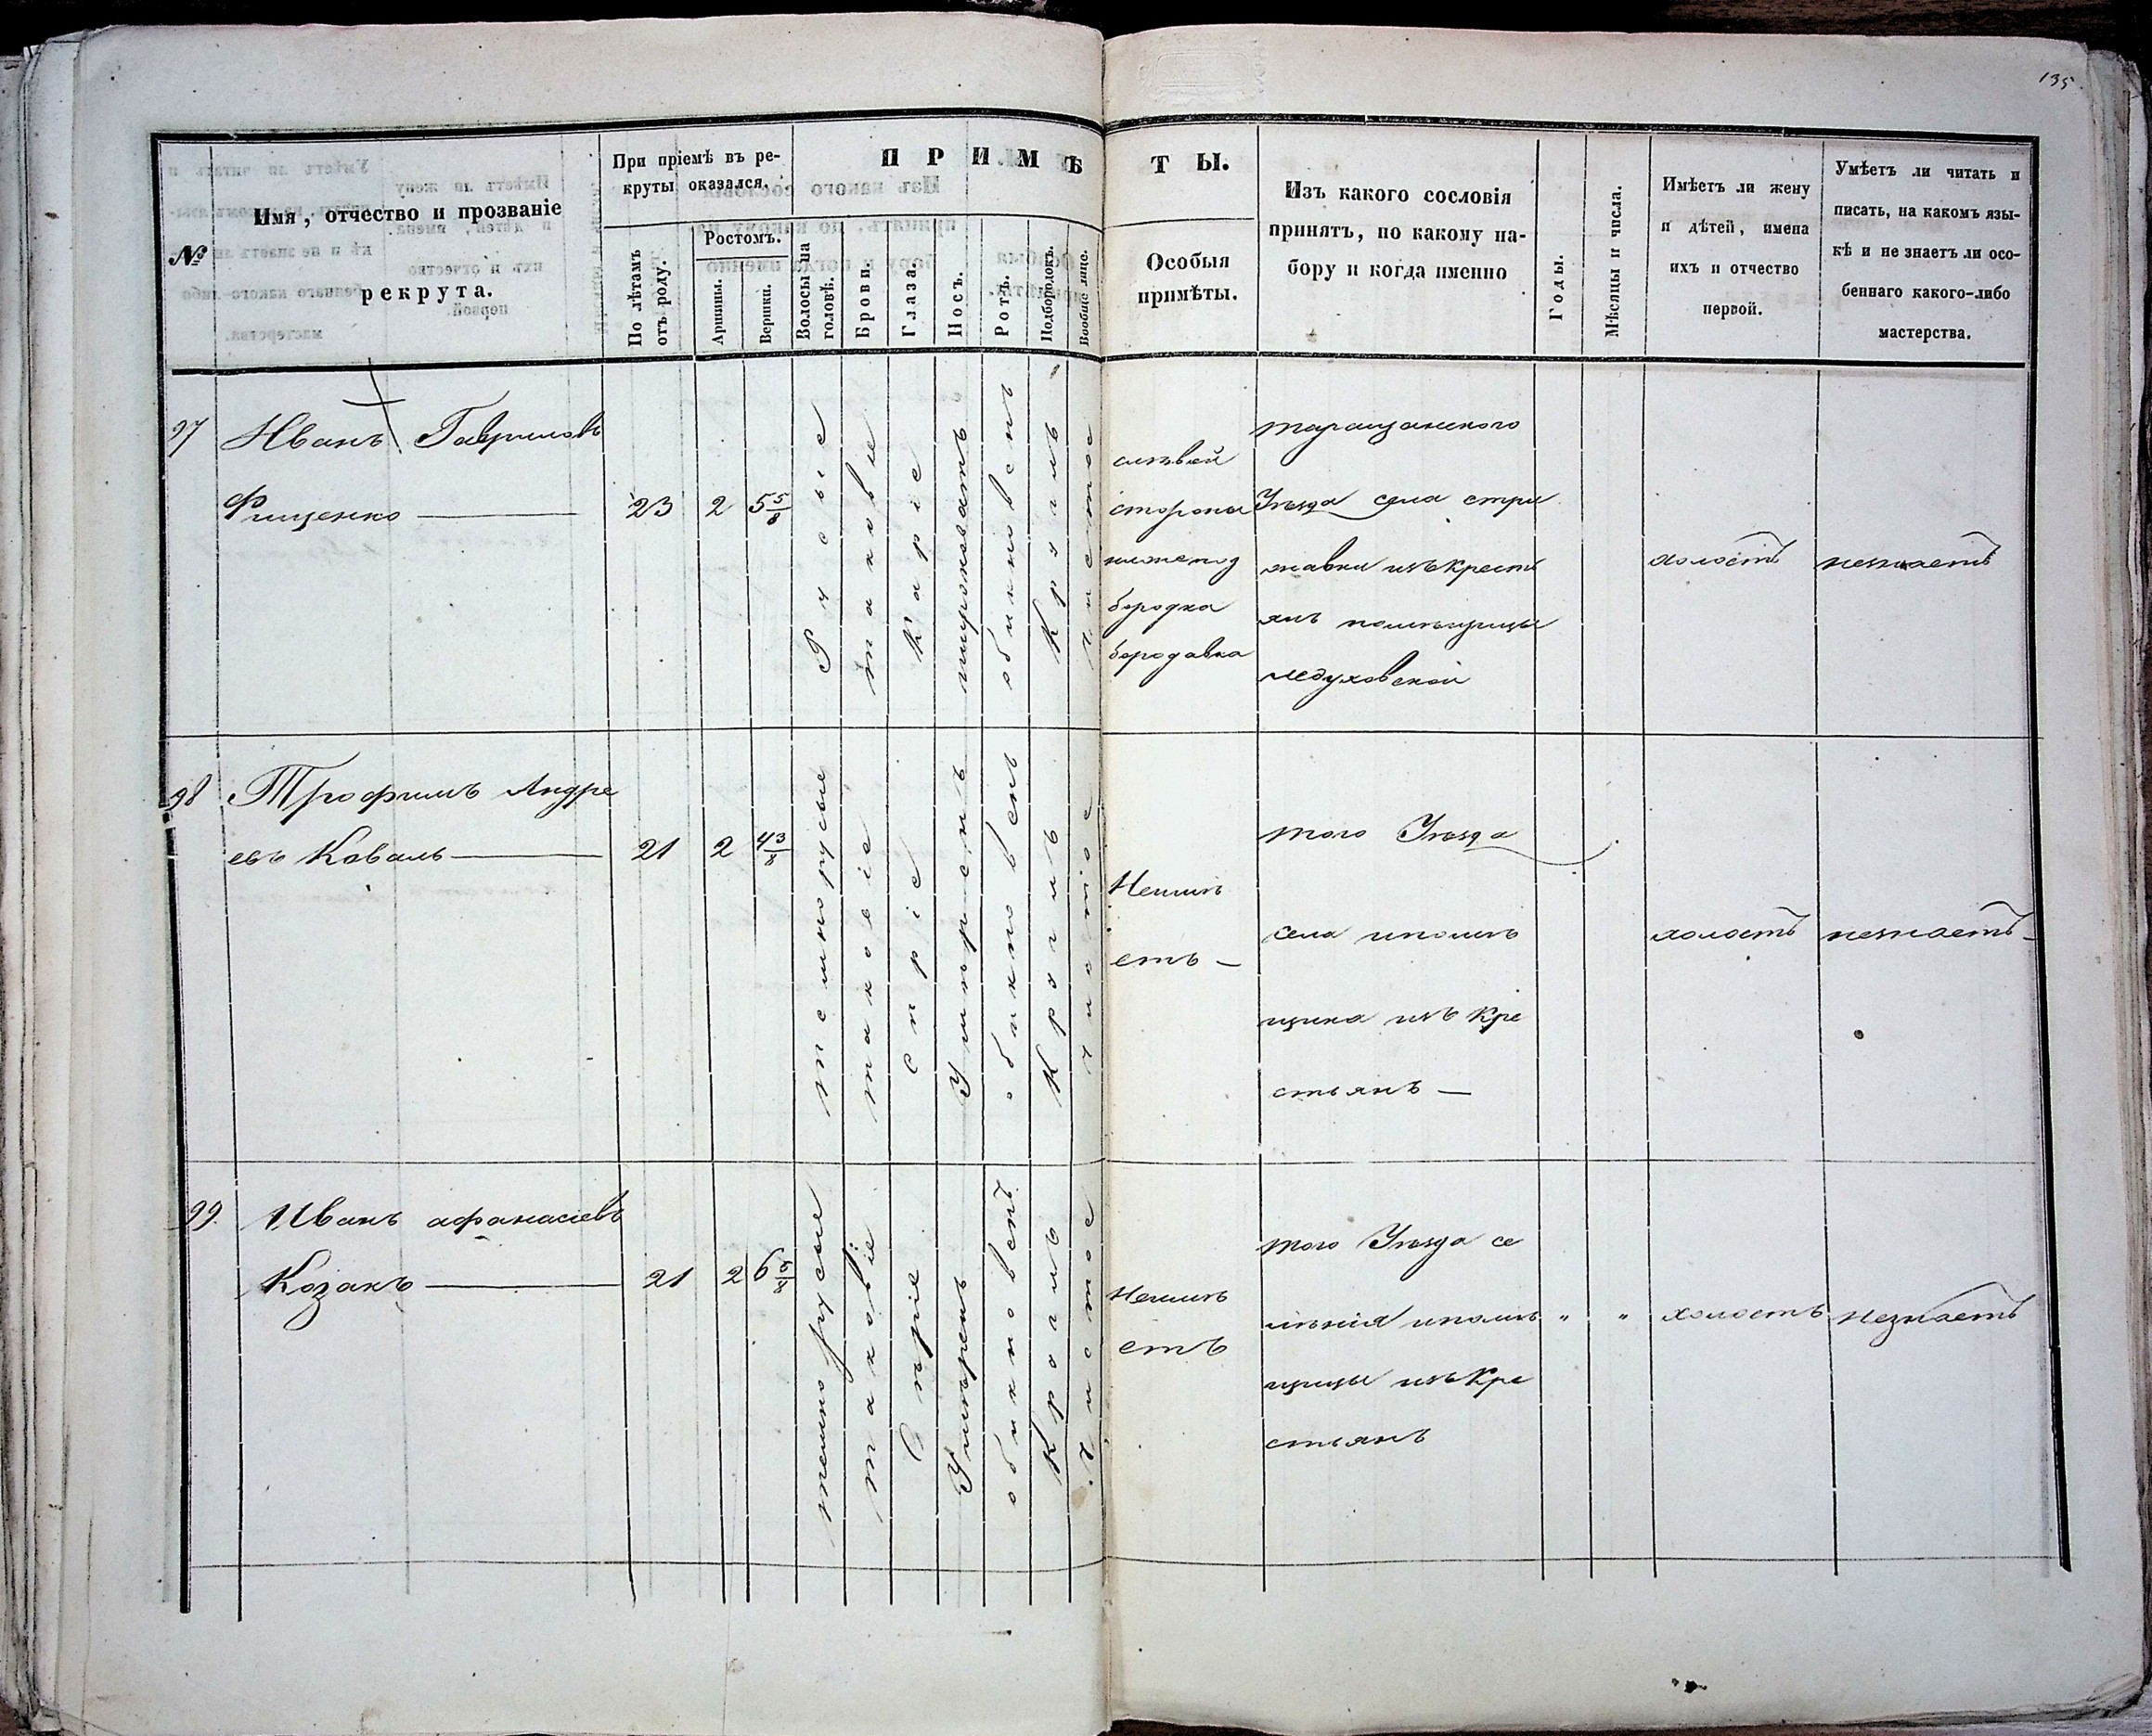 135
№
Имя, отчество и прозваніе
рекрута.
При пріемѣ въ ре-
круты оказался.
По лѣтамъ
отъ роду.
Ростомъ.
Аршины.
Вершки.
ПРИМѢТЫ.
Волосы на
головѣ.
Брови.
Глаза.
Носъ.
Ротъ.
Подбородокъ.
Вообще лице.
Особыя
примѣты.
Изъ какого сословія
принятъ, по какому на-
бору и когда именно
Годы.
Мѣсяцы и числа.
Имѣетъ ли жену
и дѣтей, имена
ихъ и отчество
первой.
Умѣетъ ли читать и
писать, на какомъ язы-
кѣ и не знаетъ ли осо-
беннаго какого-либо
мастерства.
97
Иванъ Гавриловъ
Фищенко
23
2
5 5/8
Русые
таковые
Каріе
широковатъ
обикновенъ
Круглъ
чистое
сторона
подбородка
бородавка
таращанского
Уѣзда села стри
жавки изъ крестя
янъ помѣщицы
ледуховской
холостъ
незнаетъ
98
Трофимъ Андре
евъ Коваль
21
2
4 3/8
темнорусые
таковіе
Сѣріе
Умѣренъ
обикновенъ
Кругль
чистое
Неимѣ
етъ
того Уѣзда
села ипомѣ
щика изъ Кре
стьянъ
холостъ
незнаетъ
99.
Иванъ афанасіевъ
Козакъ
21
2
6
темнорусые
таковіе
Сѣріе
Умѣренъ
обикновенъ
Кругль
чистое
Неимѣ
етъ
того Уѣзда се
лѣнія ипомѣ
щицы изъ Кре
стьянъ
"
"
холостъ
незнаетъ